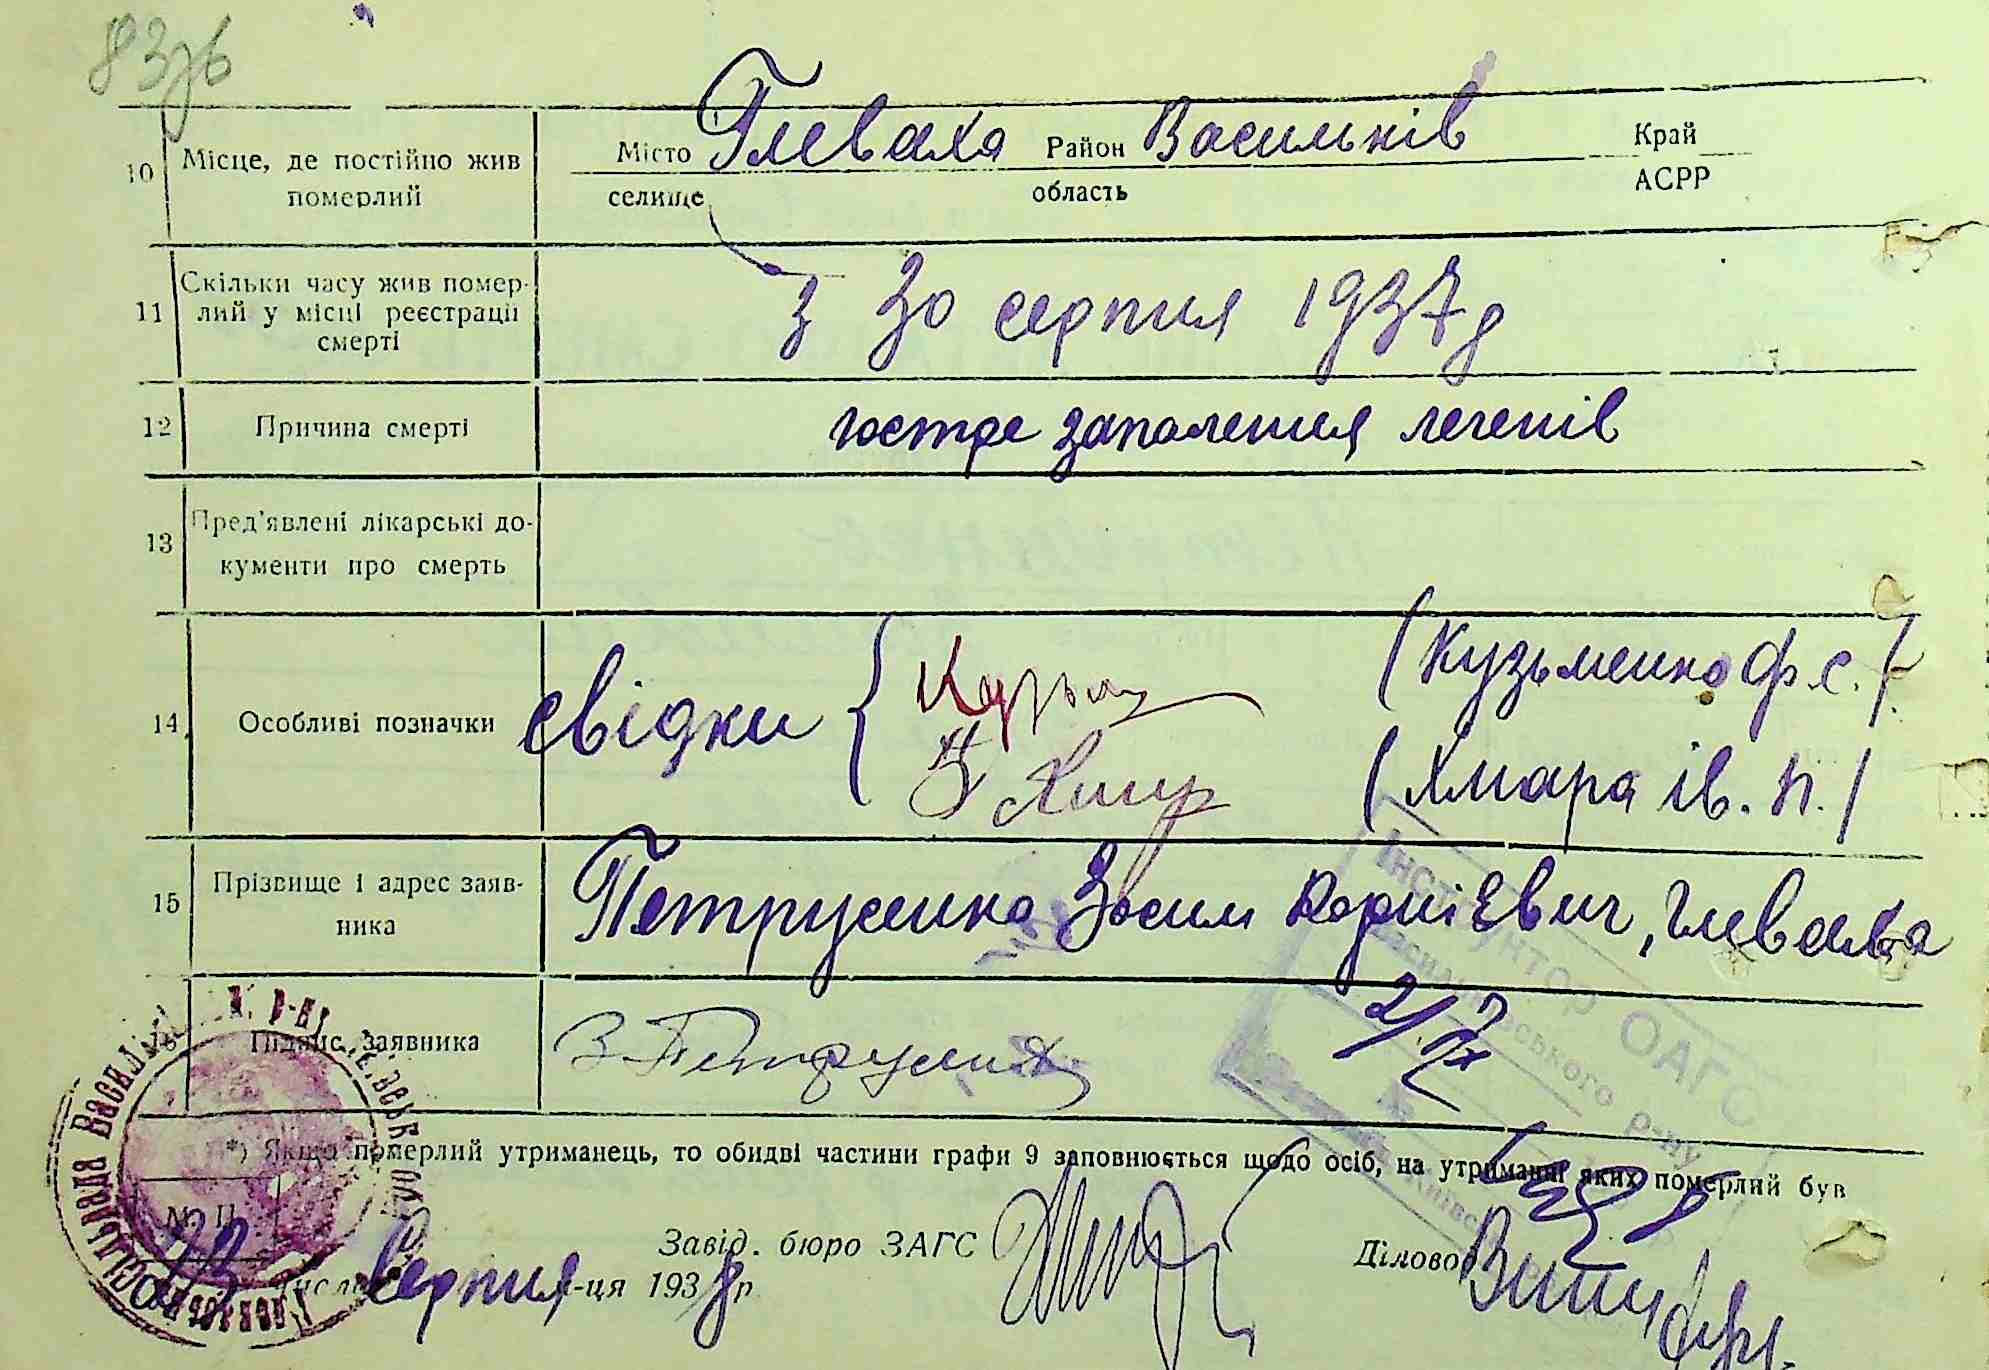 83зв
10 Місце, де постійно жив померлий
Місто Глеваха Район Васильків Край
селище область АСРР
11 Скільки часу жив помер-
лий у місці реєстрації
смерті
з 30 серпня 1937 р
12 Причина смерті
гостре запалення легенів
13 Пред'явлені лікарські до-
кументи про смерть
14 Особливі позначки
свідки { (Кузьменко Ф. С.)
Хмар (Хмара Ів. П.)
15 Прізвище і адрес заяв-
ника
Петрусенко Зосим Корнієвич, Глеваха
Підпис заявника
З. Петрусенк
2/ІХ
Інструктор ОАГС
Васильківського р-ну
*) Якщо померлий утриманець, то обидві частини графи 9 заповнюється щодо осіб, на утриманні яких померлий був
Завід. бюро ЗАГС
Діловод
числа Серпня м-ця 1938 р